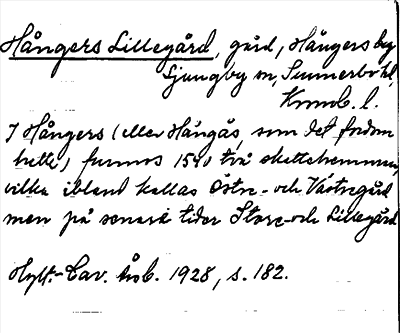 Hångers Lillegård, gård, Hångers by
Ljungby sn, Sunnerbo hd,
Kronob. l.
I Hångers (eller Hångås, som det fordom
hette) funnos 1540 två skattehemman,
vilka ibland kallas Östre- och Västregård
men på senare tider Store- och Lillegård
Hylt.-Cav. Årb. 1928, s. 182.